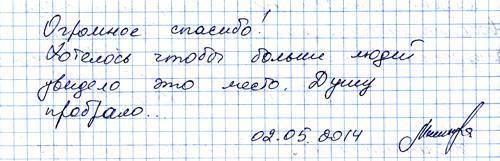 Огромное спасибо!
Хотелось чтобы больше людей
увидело это место. Душу
пробрало...
02.05.2014